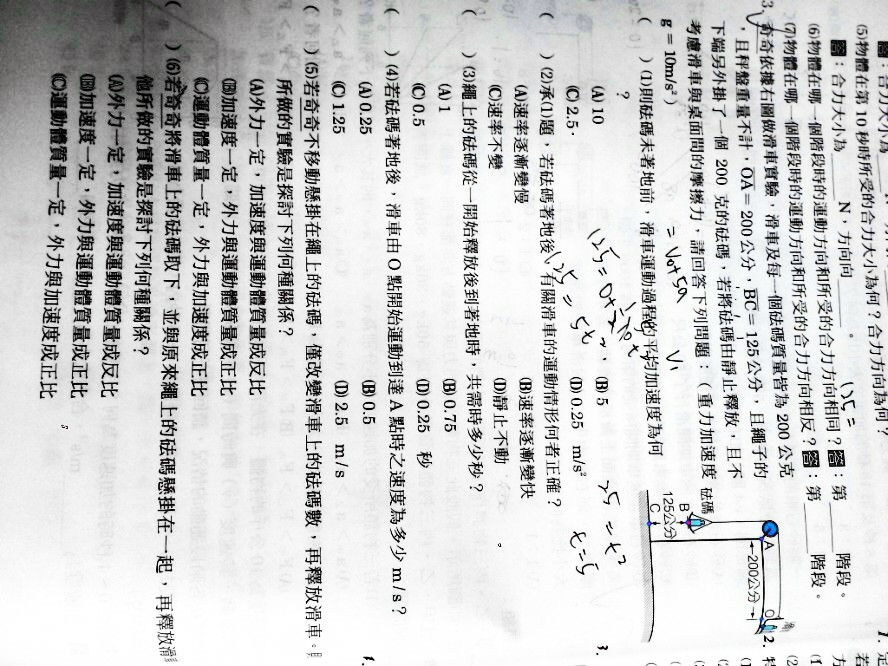 答：合力大小為
(5)物體在第 10 秒時所受的合力大小為何？合力方向為何？
答：合力大小為 N，方向向 。
(6)物體在哪一個階段時的運動方向和所受的合力方向相同？答：第 階段。
(7)物體在哪一個階段時的運動方向和所受的合力方向相反？答：第 階段。
3. 奇奇依據右圖做滑車實驗，滑車及每一個砝碼質量皆為 200 公克
，且秤盤重量不計，OA＝200 公分，BC＝125 公分，且繩子的
下端另外掛了一個 200 克的砝碼，若將砝碼由靜止釋放，且不
考慮滑車與桌面間的摩擦力，請回答下列問題：（重力加速度
g＝10m/s²）
( )(1)則砝碼未著地前，滑車運動過程的平均加速度為何
？
(A) 10 (B) 5
(C) 2.5 (D) 0.25 m/s²
( )(2)承(1)題，若砝碼著地後，有關滑車的運動情形何者正確？
(A)速率逐漸變慢 (B)速率逐漸變快
(C)速率不變 (D)靜止不動 。
( )(3)繩上的砝碼從一開始釋放後到著地時，共需時多少秒？
(A) 1 (B) 0.75
(C) 0.5 (D) 0.25 秒
( )(4)若砝碼著地後，滑車由 O 點開始運動到達 A 點時之速度為多少 m/s？
(A) 0.25 (B) 0.5
(C) 1.25 (D) 2.5 m/s
( )(5)若奇奇不移動懸掛在繩上的砝碼，僅改變滑車上的砝碼數，再釋放滑車。
所做的實驗是探討下列何種關係？
(A)外力一定，加速度與運動體質量成反比
(B)加速度一定，外力與運動體質量成正比
(C)運動體質量一定，外力與加速度成正比
( )(6)若奇奇將滑車上的砝碼取下，並與原來繩上的砝碼懸掛在一起，再釋放滑
他所做的實驗是探討下列何種關係？
(A)外力一定，加速度與運動體質量成反比
(B)加速度一定，外力與運動體質量成正比
(C)運動體質量一定，外力與加速度成正比 。
砝碼
A
O
200公分
B
125公分
C
125 =
= V₀t + 5a
V₁
25 = 5x
25 = x²
x = 5
1.
2.
3.
1.